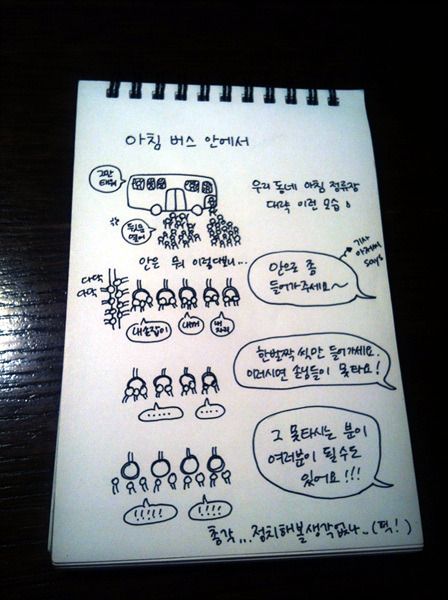 아침 버스 안에서
그만
태워
우리 동네 아침 정류장
대략 이런 모습
안은 뭐 이렇다보니...
기사
아저씨
says
안으로 좀
들어가주세요~
다닥
다닥
내손잡이
내
자리
한발짝 씩만 들어가세요.
이러시면 손님들이 못타요!
......
....
그 못타시는 분이
여러분이 될 수도
있어요!!!
!!!!!
!!!!
총각...정치해볼생각없나..(퍽!)